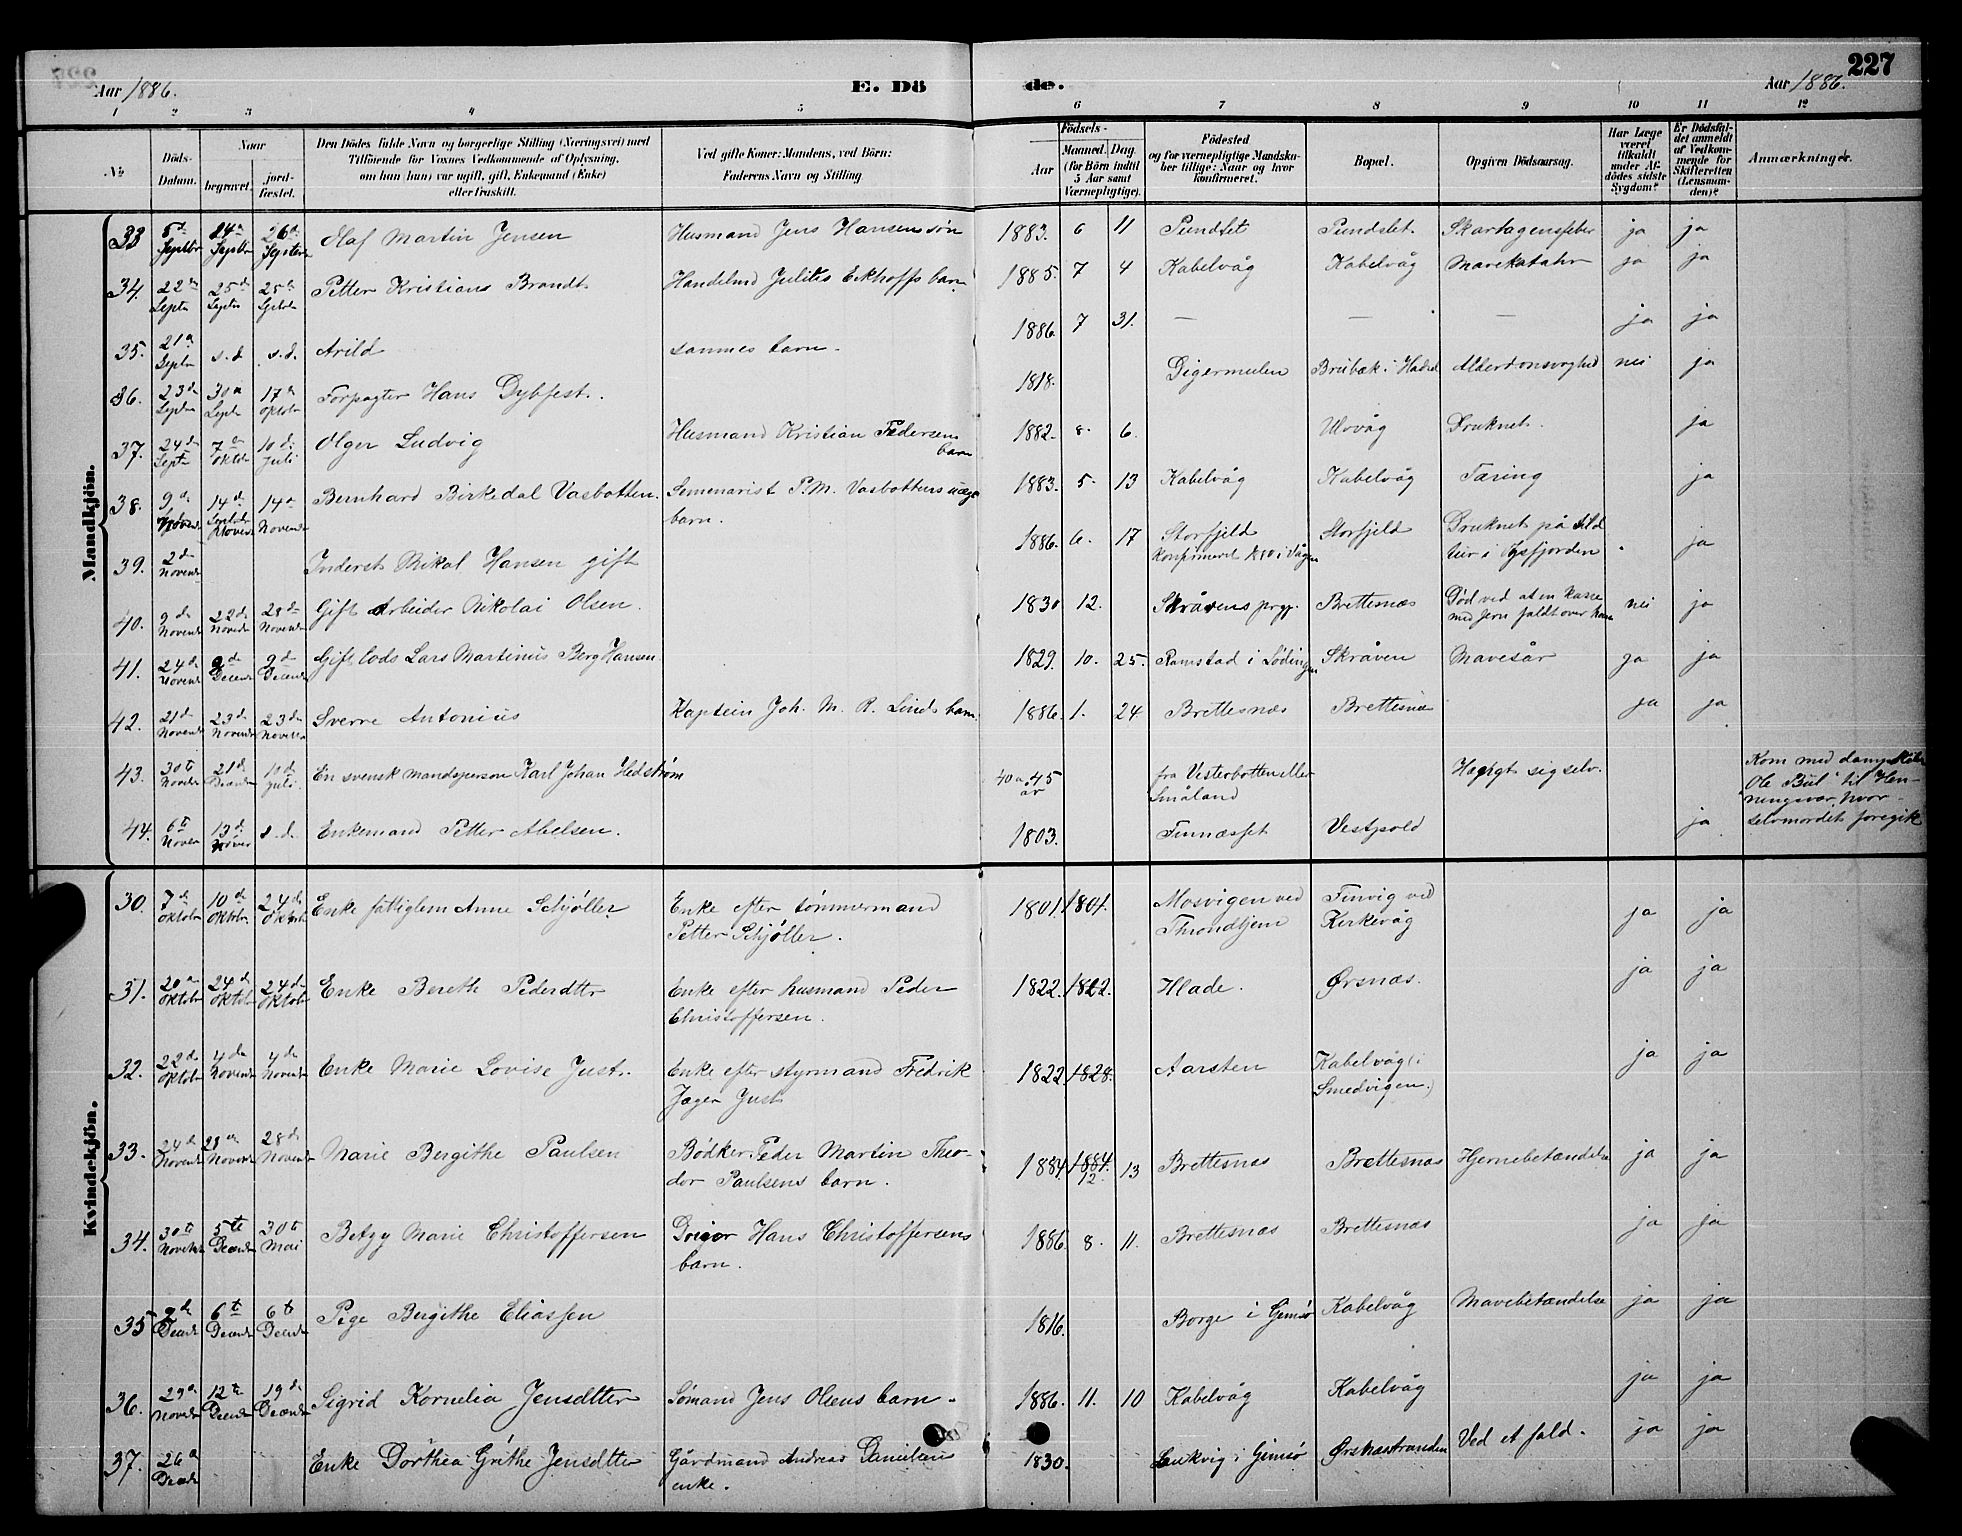 227
Aar 1886. E. Dö de. Aar 1886.
1 2 3 4 5 6 7 8 9 10 11 12
No
Döds-
Datum.
Naar
begravet.
jord-
fæstet.
Den Dödes fulde Navn og borgerlige Stilling (Næringsvei) med
Tilföiende for Voxnes Vedkommende af Oplysning,
om han (hun) var ugift, gift, Enkemand (Enke)
eller fraskilt.
Ved gifte Koner: Mandens, ved Börn:
Faderens Navn og Stilling.
Födsels-
Aar
Maaned. Dag.
(for Börn indtil
5 Aar samt
Værnepligtige).
Födested
og for værnepligtige Mandska-
ber tillige: Naar og hvor
konfirmeret.
Bopæl.
Opgiven Dödsaarsag.
Har Læge
været
tilkaldt
under Af-
dödes sidste
Sygdom?
Er Dödsfal-
det anmeldt
af Vedkom-
mende for
Skifteretten
(Lensman-
den)?
Anmærkninger.
Mandkjön.
33. 5te Septbr 24de Septbr 26de Septbr Olaf Martin Jensen Husmand Jens Hansens søn 1883. 6 11 Pundslet Pundslet. Skarlagensfeber ja ja
34. 22de Septr 25de Septbr 25de Septbr Petter Kristians Brandt Handelsmd Julius Eckhoffs barn 1885. 7 4 Kabelvåg Kabelvåg Mavekatahr ja ja
35. 21de Septbr s.d. s.d. Arild sammes barn. 1886. 7 31. — — — ja ja
36. 23de Septbr 30te Septr 17de Oktobr Forpagter Hans Dybfest. 1818. Digermulen Breibæk i Hadsel Alderdomssvaghed nei ja
37. 24de Septr 7de Oktobr 10de Juli Olger Ludvig Husmand Kristian Pedersens
barn 1882. 8. 6. Ulvåg Druknet. ja
38. 9de Novembr 14de 14de Novembr Bernhard Birkedal Vasbotten. Semenarist P.M. Vasbottens
barn. 1883. 5. 13 Kabelvåg Kabelvåg Tæring ja
39. 2de Novembr Inderst Mikal Hansen gift 1886. 6. 17 Storfjeld
Storfjeld Druknet på
i ja
40. 9de Novembr 22de Novembr 28de Novembr Gift Arbeider Nikolai Olsen. 1830 12. Skråvens prgj. Brettesnæs Död ved at en kasse
med Jern faldt over ham nei ja
41. 24de Novembr 9de Decembr 9de Decembr Gift Lods Lars Martinus Berg Hansen. 1829. 10. 25. Ramstad i Lødingen Skråven Mavesår ja ja
42. 21de Novembr 23de Novembr 23de Novembr Sverre Antonius Kaptein Joh. M. R. Linds barn 1886. 1. 24 Brettesnæs Brettesnæs ja ja
43. 30te Novembr 21de Decembr 10de Juli En svensk mandsperson Karl Johan Hedstrøm 40 a 45
år fra Vesterbotten eller
Småland Hængt sig selv. Kom med dampskibet
"Ole Bull" til Hen-
ningsvær, hvor
selvmordet foregik
44. 6te Novem 13de s.d. Enkemand Petter Abelsen. 1803. Finnæsset Vestpold ja
Kvindekjön.
30. 7de Oktobr 10de Oktobr 24de Oktobr Enke fattiglem Anne Schjøller Enke efter tømmermand
Petter Schjøller. 1801 1801. Mosvigen ved
Throndhjem Finvig ved
Kirkevåg ja ja
31. 20de Oktobr 24de Oktobr 24de Oktobr Enke Bereth Pedersdttr Enke efter husmand Peder
Christoffersen. 1822. 1822. Hlade. Ørsnæs. ja ja
32. 22de Oktobr 4de Novembr 4de Novembr Enke Marie Lovise Just. Enke efter styrmand Fredrik
Jæger Just 1822 1828. Aarsten Kabelvåg (i
Smedvigen.) ja ja
33. 24de Novembr 28de Novembr 28de Novembr Marie Bergithe Paulsen Bødker Peder Martin Theo-
dor Paulsens barn. 1884. 1884. 12 13 Brettesnæs Brettesnæs Hjernebetændelse ja ja
34. 30te Novembr 5te Decembr 30te Mai Betzy Marie Christoffersen Hans Christoffersens
barn. 1886. 8. 11. Brettesnæs Brettesnæs ja ja
35 2de Decembr 6te Decembr 6te Decembr Pige Bergithe Eliassen 1816. Borge i Gimsø Kabelvåg Mavebetændelse ja ja
36. 29de Novembr 12te Decembr 19de Decembr Sigrid Kornelia Jensdtter Sømand Jens Olsens barn. 1886. 11. 10 Kabelvåg Kabelvåg ja ja
37. 26de Decbr Enke Dorthea Grethe Jensdtter Gårdmand Andreas Danielsens
enke. 1830. i Gimsø Ørsnæsstranden Ved et fald. ja ja